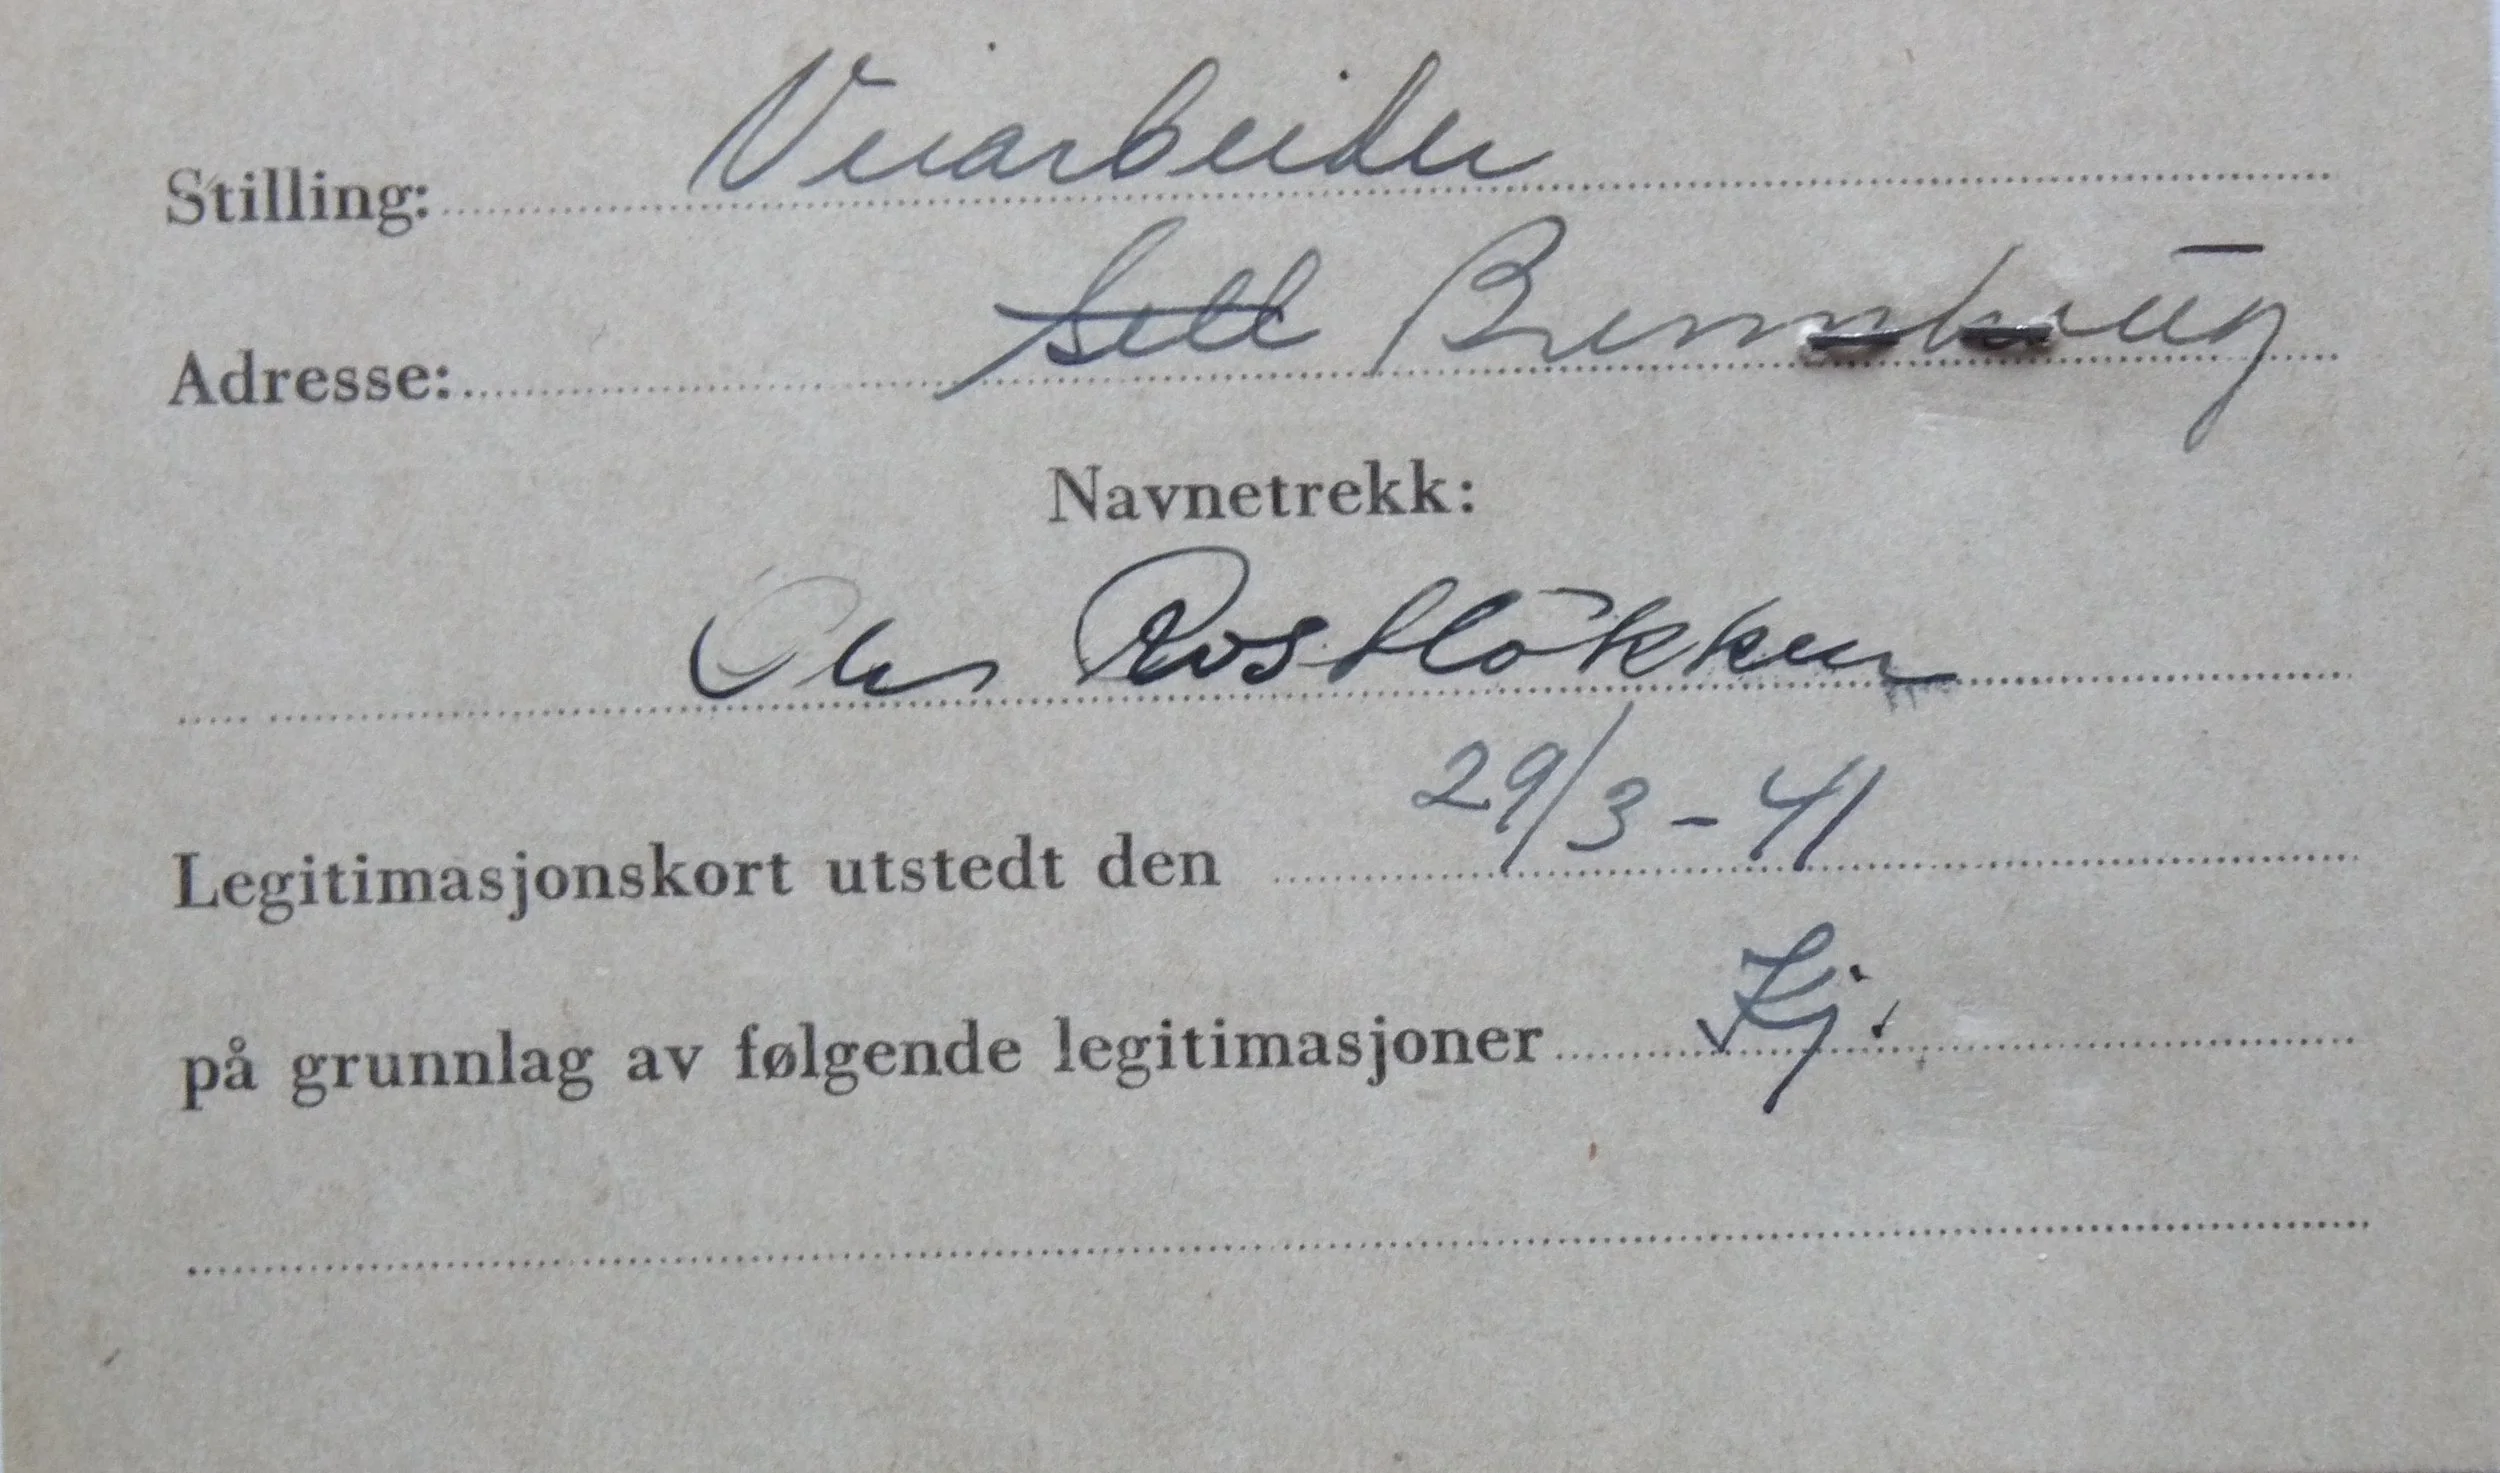 Stilling: Veiarbeider
Adresse: Sell
Navnetrekk:
Rostløkken
Legitimasjonskort utstedt den 29/3-41
på grunnlag av følgende legitimasjoner Kj.